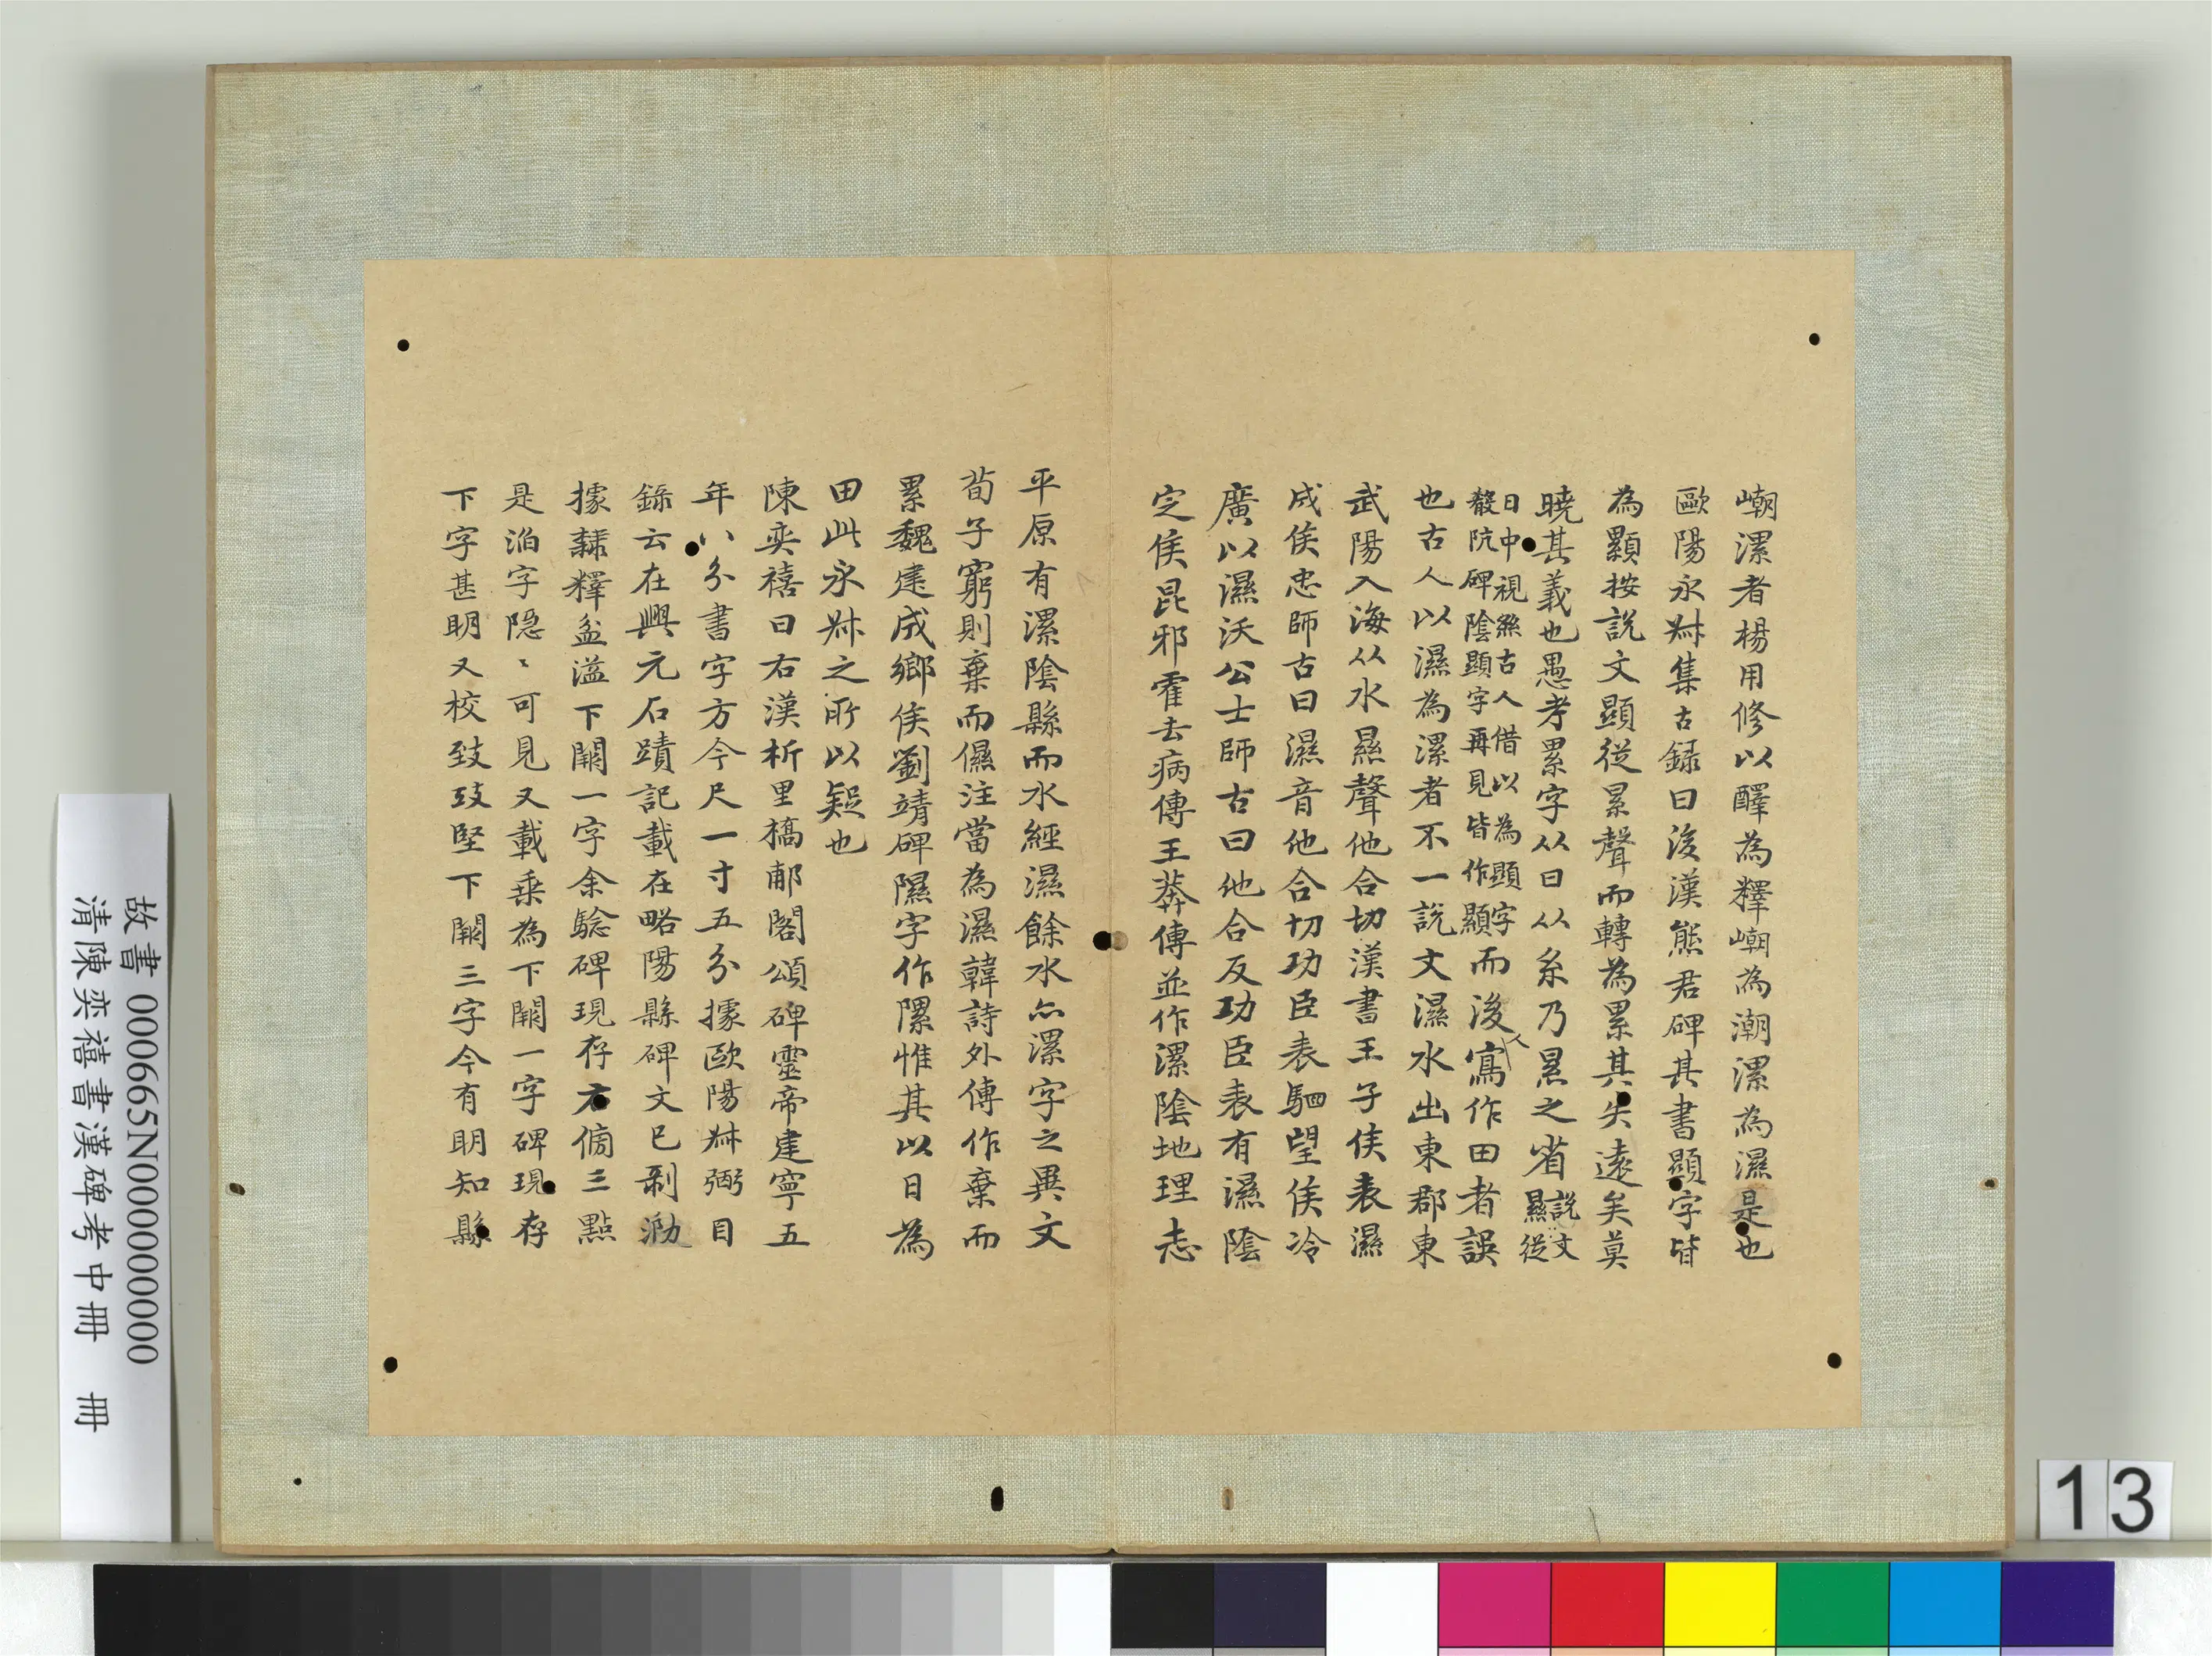 嶹漯者楊用修以醳為釋嶹為潮漯為濕是也
歐陽永叔集古録曰後漢熊君碑其書顯字皆
為顥按說文顯從㬎聲而轉為累其失遠矣莫
曉其義也愚考累字从日从糸乃㬎之省說文㬎從
日中視絲古人借以為顯字殽阬碑陰顯字再見皆作顯而後人寫作田者誤
也古人以濕為漯者不一說文濕水出東郡東
武陽入海从水㬎聲他合切漢書王子侯表濕
成侯忠師古曰濕音他合切功臣表駟望侯冷
廣以濕沃公士師古曰他合反功臣表有濕陰
定侯昆邪霍去病傳王莽傳並作漯陰地理志
平原有漯陰縣而水經濕餘水亦漯字之異文
荀子窮則棄而儑注當為濕韓詩外傳作棄而
累魏建成鄉侯劉靖碑隰字作㙼惟其以日為
田此永叔之所以疑也
陳奕禧曰右漢析里橋郙閣頌碑靈帝建寧五
年八分書字方今尺一寸五分據歐陽叔弼目
錄云在興元石蹟記載在略陽縣碑文已剥泐
據隸釋盆溢下闕一字余驗碑現存右偏三點
是滔字隱〻可見又載乗為下闕一字碑現存
下字甚明又校致攻堅下闕三字今有明知縣
故書 000665N000000000
清陳奕禧書漢碑考中冊 冊
13